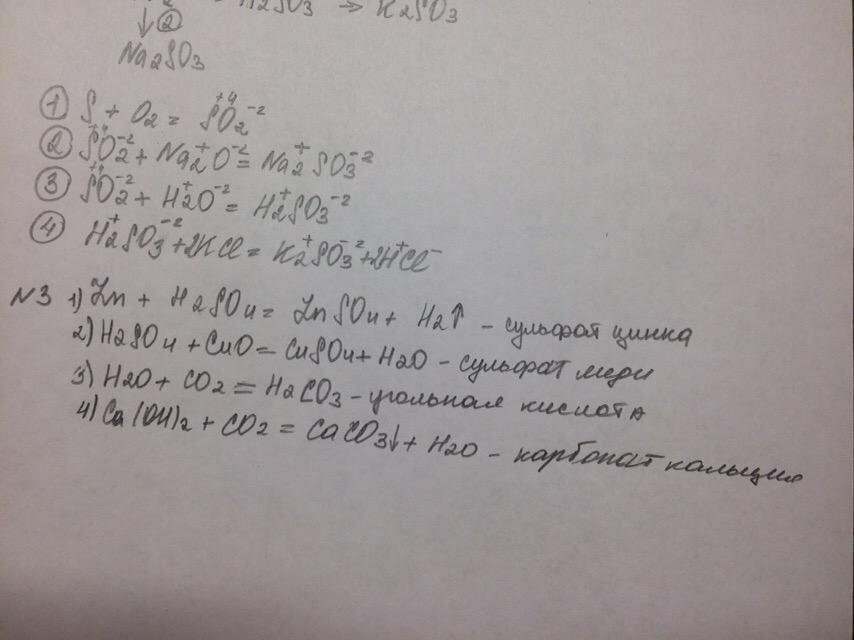 H2SO3 → K2SO3
↓ ②
Na2SO3
① S + O2 = S⁺⁴O2⁻²
② S⁺⁴O2⁻² + Na2⁺O⁻² = Na2⁺SO3⁻²
③ S⁺⁴O2⁻² + H2⁺O⁻² = H2⁺SO3⁻²
④ H2⁺SO3⁻² + 2KCl = K2⁺SO3⁻² + 2H⁺Cl⁻
N3 1) Zn + H2SO4 = ZnSO4 + H2↑ - сульфат цинка
2) H2SO4 + CuO = CuSO4 + H2O - сульфат меди
3) H2O + CO2 = H2CO3 - угольная кислота
4) Ca(OH)2 + CO2 = CaCO3↓ + H2O - карбонат кальция